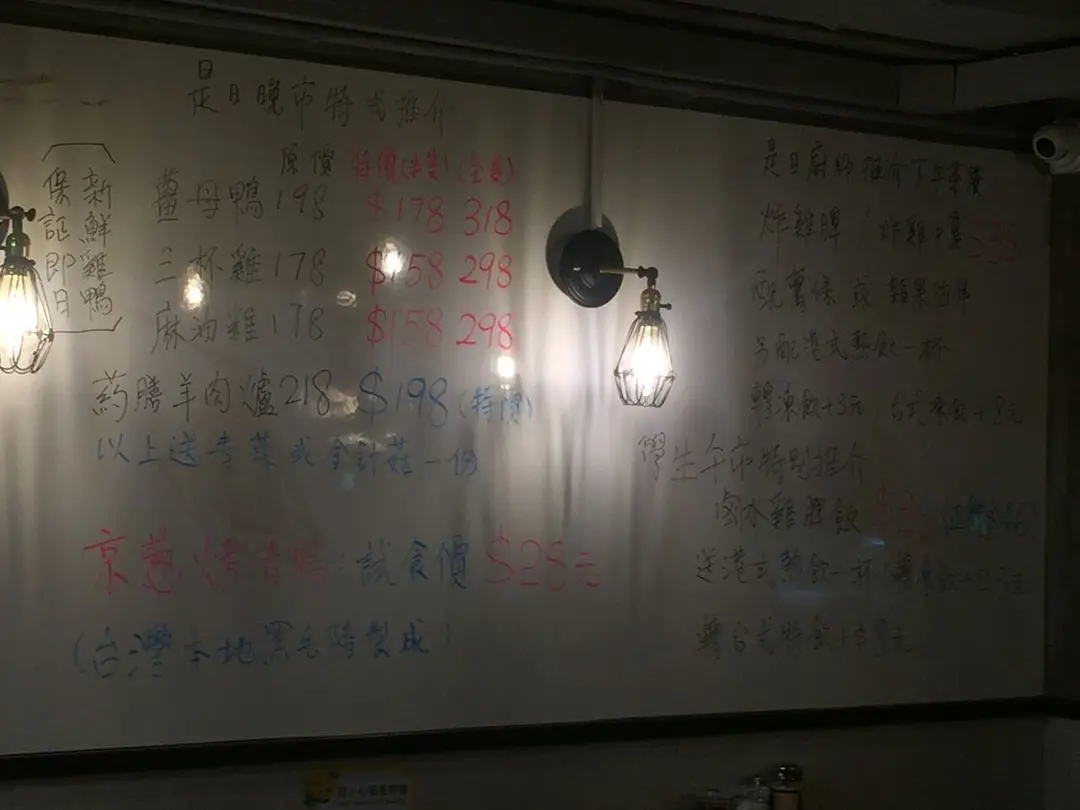 是日晚市特式推介
新鮮雞鴨
保証即日
原價 特價(半隻) (全隻)
薑母鴨 198 $178 318
三杯雞 178 $158 298
麻油雞 178 $158 298
葯膳羊肉爐 218 $198 (特價)
以上送青菜或金針菇一份
京蔥烤香鴨：試食價 $28元
(台灣本地黑毛 製成)
是日廚師推介下午茶餐
炸雞脾 / 炸雞
配薯條或
另配港式熱飲一杯
轉凍飲+3元 台式特飲+8元
學生午市特別推介
鹵水雞脾飯
送港式熱飲一杯
轉台式特飲+$8元